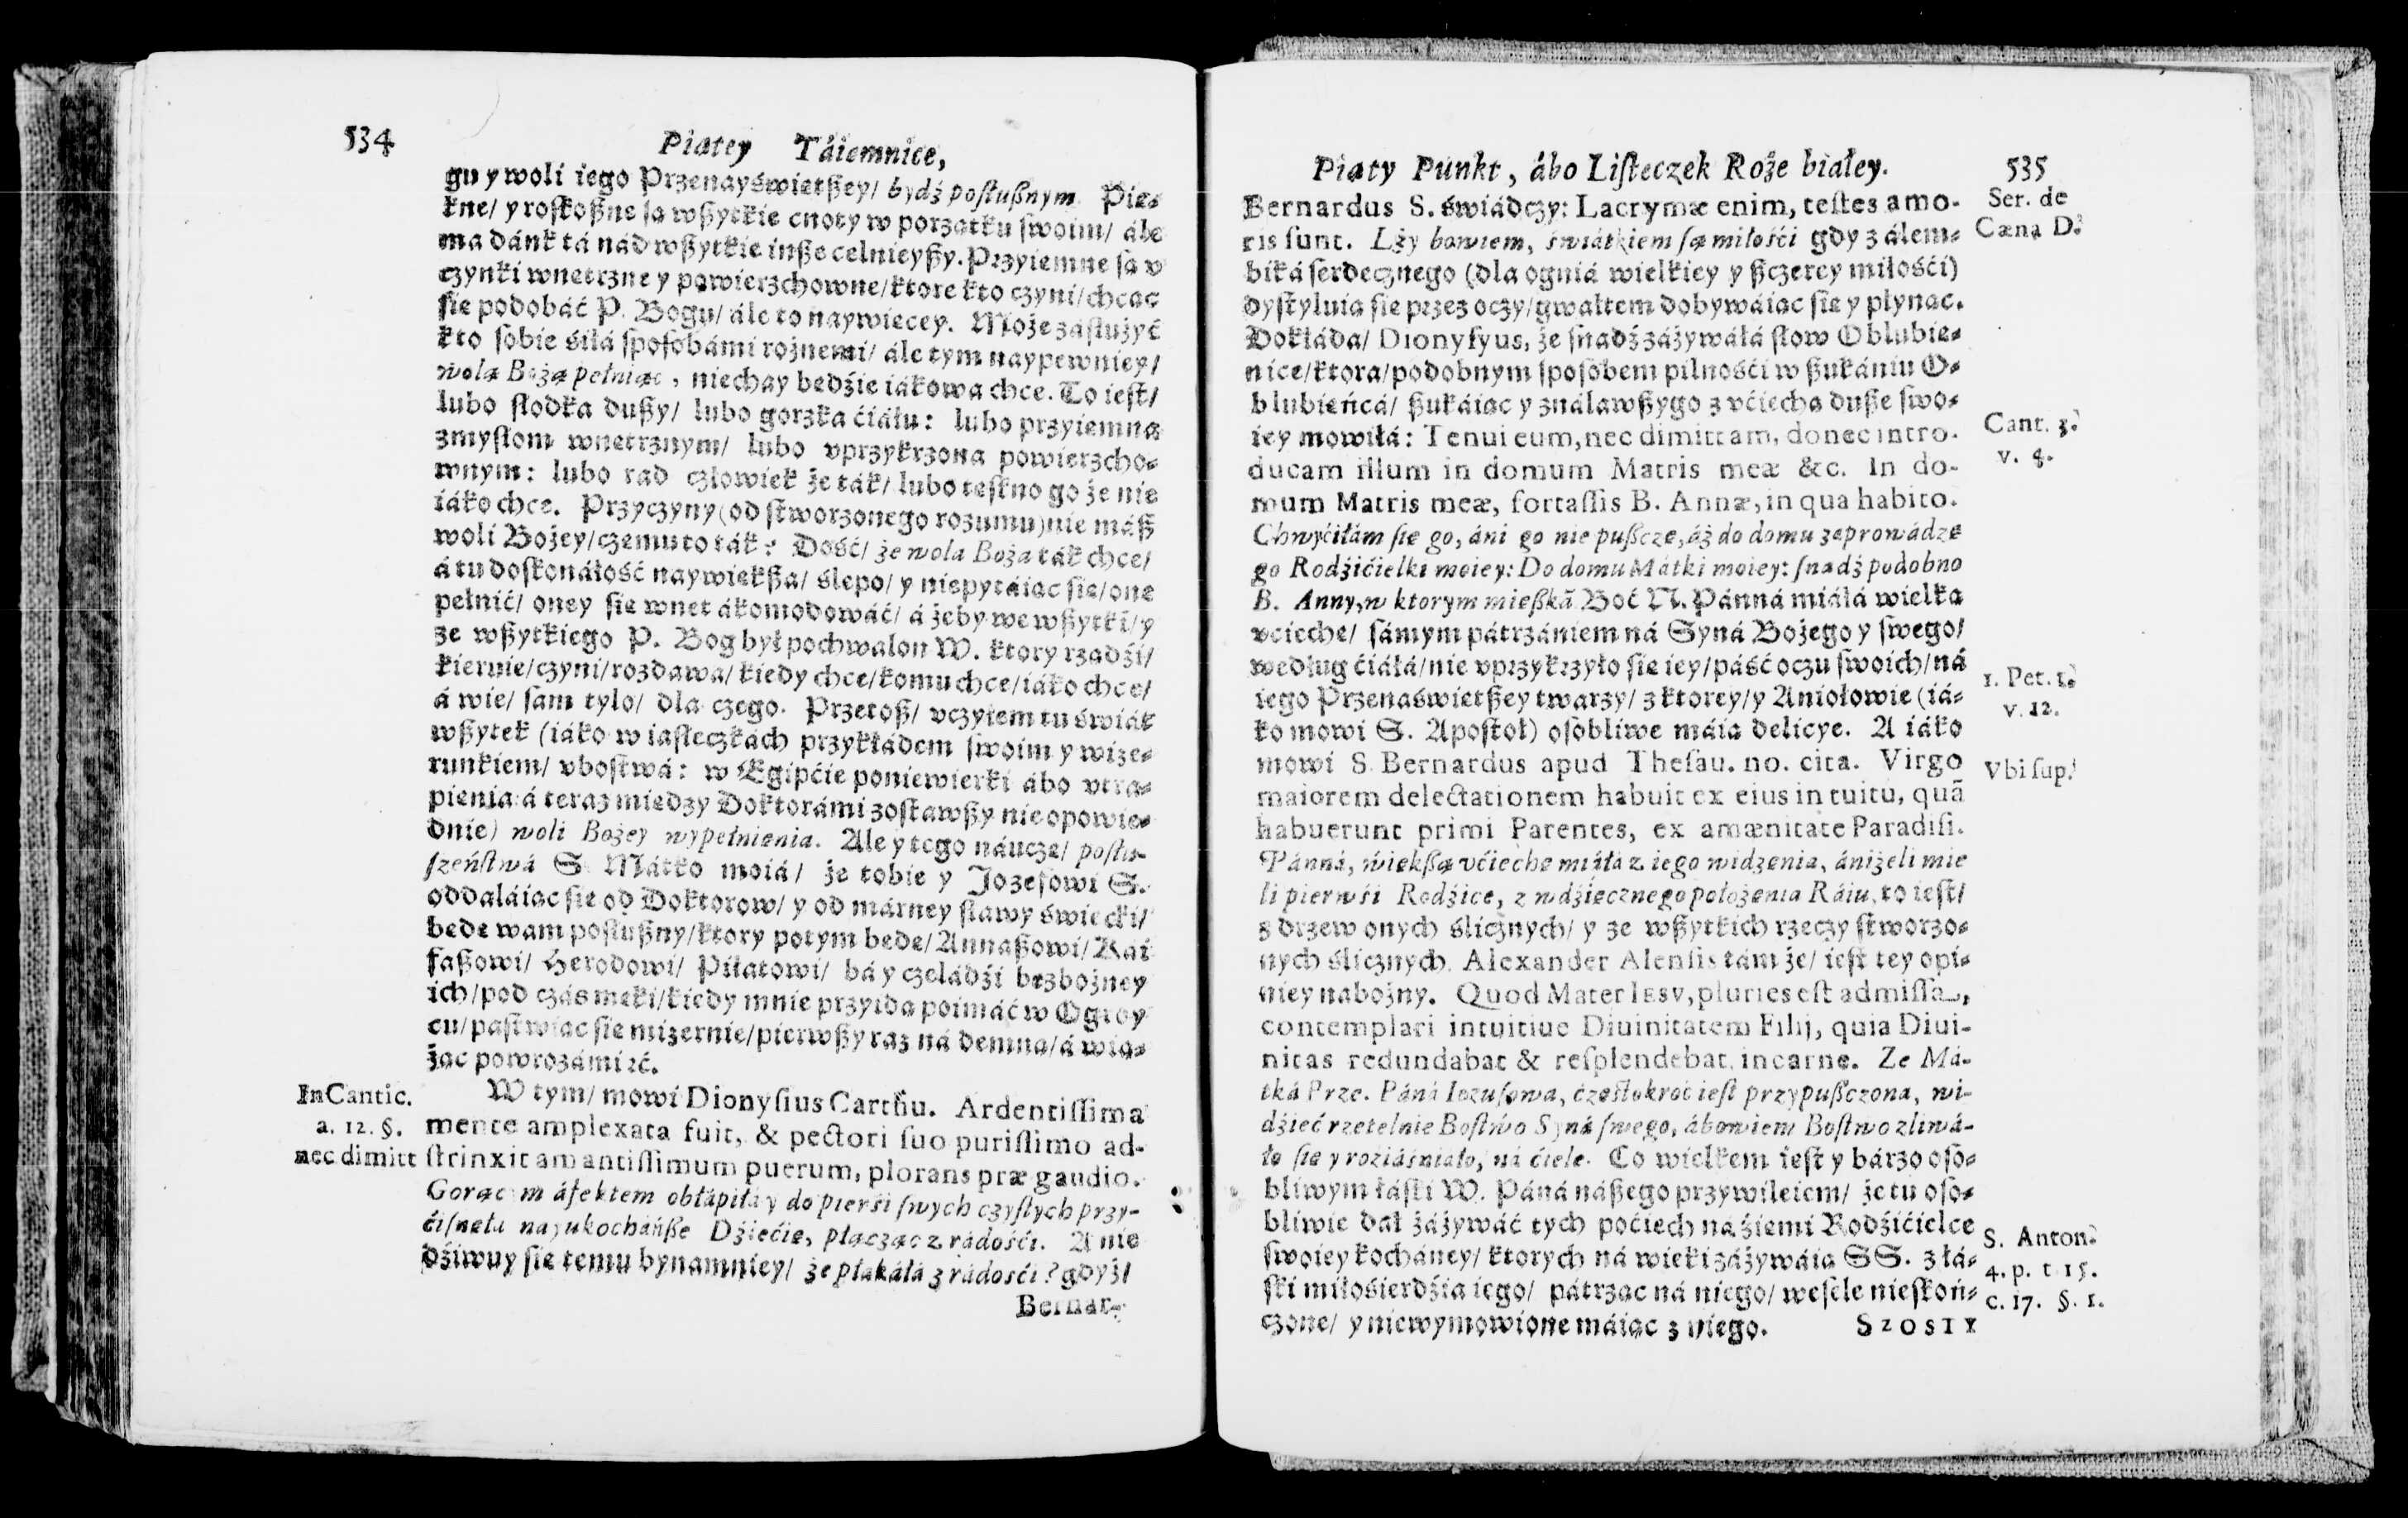 534
Piatey Táiemnice,
gu y woli iego Przenayświetßey/ bydź posłußnym. Pie-
kne/ y roskoßne są wßytkie cnoty w porzątku swoim/ ále
ma dánk tá nád wßytkie inße celnieyßy. Przyiemne są v
czynki wnetrzne y powierzchowne/ ktore kto czyni/ chcąc
sie podobáć P. Bogu/ ále to naywiecey. Może zásłużyć
kto sobie siłá sposobámi rożnemi/ ále tym naypewniey/
wolą Bożą pełniąc, niechay bedźie iákowa chce. To iest/
lubo słodka dußy/ lubo gorzka ćiáłu: lubo przyiemna
zmysłom wnetrznym/ lubo vprzykrzona powierzcho-
wnym: lubo rad człowiek że ták/ lubo teskno go że nie
iáko chce. Przyczyny (od stworzonego rozumu) nie máß
woli Bożey/ czemu to ták: Dość/ że wola Boża ták chce/
á tu doskonáłość naywiekßa/ ślepo/ y niepytáiąc sie/ one
pełnić/ oney sie wnet ákomodowáć/ á żeby we wßytki/ y
ze wßytkiego P. Bog był pochwalon W. ktory rządźi/
kieruie/ czyni/ rozdawa/ kiedy chce/ komu chce/ iáko chce/
á wie/ sam tylo/ dla czego. Przetoß/ vczyłem tu świát
wßytek (iáko w iasłeczkách przykłádem swoim y wize-
runkiem/ vbostwá: w Egipćie poniewierki ábo vtra-
pienia: á teraz miedzy Doktorámi zostawßy nieopowie-
dnie) woli Bożey wypełnienia. Ale y tego náucze/ posłu-
szeństwá S. Mátko moiá/ że tobie y Jozefowi S.
oddaláiąc sie od Doktorow/ y od márney sławy świecki/
bede wam posłußny/ ktory potym bede/ Annaßowi/ Kai
faßowi/ Herodowi/ Piłatowi/ bá y czeládźi bezbożney
ich/ pod czás meki/ kiedy mnie przyidą poimáć w Ogroy
cu/ pastwiąc sie mizernie/ pierwßy raz ná demną/ á wią-
żąc powrozámi ꝛć.
In Cantic.
a. 12. §.
nec dimitt
W tym/ mowi Dionysius Carthu. Ardentissima
mente amplexata fuit, & pectori suo purissimo ad-
strinxit amantissimum puerum, plorans præ gaudio.
Gorącym áfektem obłápiłá y do pierśi swych czystych przy-
ćisneła nayukocháńße Dźiećie, płacząc z rádośći. A nie
dźiwuy sie temu bynamniey/ że płakáłá z rádośći? gdyż/
Bernar-
Piaty Punkt, ábo Listeczek Roże białey.
535
Bernardus S. świádczy: Lacrymæ enim, testes amo-
ris sunt. Lzy bowiem, świátkiem są miłośći gdy z álem-
biká serdecznego (dla ogniá wielkiey y ßczerey miłośći)
dystyluią sie przez oczy/ gwałtem dobywáiąc sie y płynąc.
Dokłáda/ Dionysyus, że snadź záżywáłá słow Oblubie-
nice/ ktora/ podobnym sposobem pilnośći w ßukániu O-
blubieńcá/ ßukáiąc y ználawßy go z vćiechą duße swo-
iey mowiłá: Tenui eum, nec dimittam, donec intro-
ducam illum in domum Matris meæ &c. In do-
mum Matris meæ, fortassis B. Annæ, in qua habito.
Chwyćiłám sie go, áni go nie pußcze, áż do domu záprowádze
go Rodźićielki moiey: Do domu Mátki moiey: snadź podobno
B. Anny, w ktorym mießkã. Boć N. Pánná miáłá wielką
vcieche/ sámym pátrzániem ná Syná Bożego y swego/
według ćiáłá/ nie vprzykrzyło sie iey/ páść oczu swoich/ ná
iego Przenaświetßey twarzy/ z ktorey/ y Aniołowie (iá-
ko mowi S. Apostoł) osobliwe máią delicye. A iáko
mowi S. Bernardus apud Thesau. no. cita. Virgo
maiorem delectationem habuit ex eius intuitu, quã
habuerunt primi Parentes, ex amænitate Paradisi.
Pánná, wiekßą vćieche miáłá z iego widzenia, ániżeli mie
li pierwśi Rodźice, z wdźiecznego położenia Ráiu, to iest/
z drzew onych ślicznych/ y ze wßytkich rzeczy stworzo-
nych ślicznych. Alexander Alensis tám że/ iest tey opi-
niey nabożny. Quod Mater Iesv, pluries est admissa,
contemplari intuitiue Diuinitatem Filij, quia Diui-
nitas redundabat & resplendebat, in carne. Ze Má-
tká Prze. Páná Iezusowa, częstokroć iest przypußczona, wi-
dźieć rzetelnie Bostwo Syná swego, ábowiem Bostwo zliwá-
ło sie y roziáśniało, ná ćiele. Co wielkem iest y bárzo oso-
bliwym łáski W. Páná náßego przywileiem/ że tu oso-
bliwie dał záżywáć tych poćiech ná źiemi Rodźićielce
swoiey kocháney/ ktorych ná wieki záżywáią SS. z łá-
ski miłośierdźia iego/ pátrząc ná niego/ wesele nieskoń-
czone/ y niewymowione máiąc z niego.
SZOSTY
Ser. de
Cæna D.
Cant. 3.
v. 4.
1. Pet. 1.
v. 12.
Vbi sup.
S. Anton.
4. p. t 15.
c. 17. §. 1.